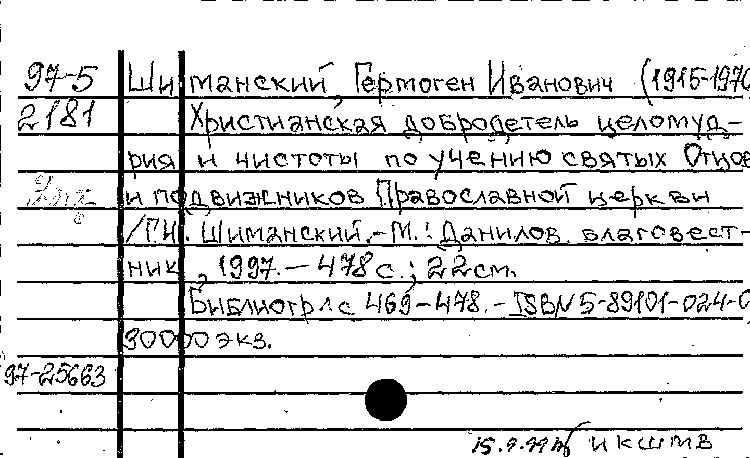 97-5 Шиманский, Гермоген Иванович (1915-1970
2181 Христианская добродетель целомуд-
рия и чистоты по учению святых Отцов
и подвижников Православной церкви
/Г.И. Шиманский.-М.: Данилов. благовест-
ник, 1997.-478с.; 22см.
Библиогр.: с 469-478.-ISBN 5-89101-024-0
30000экз.
97-25663
15.9.97 ИКШТВ